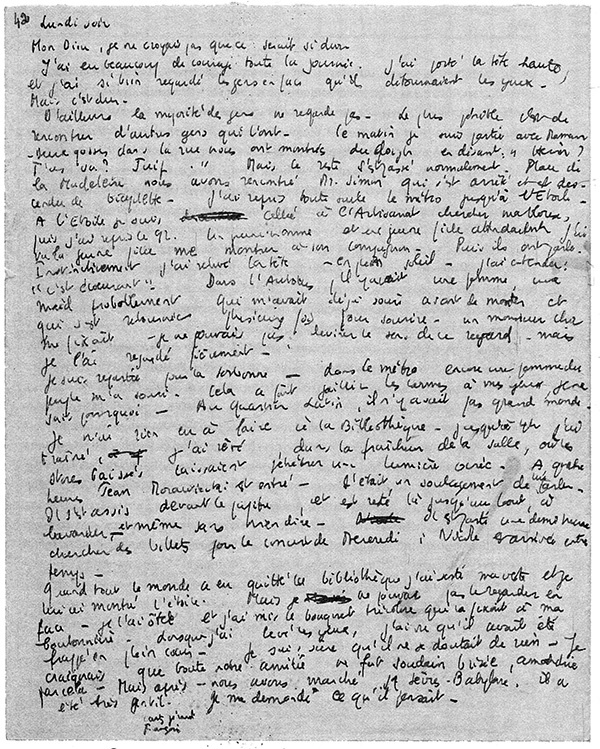 42 Lundi soir
Mon Dieu, je ne croyais pas que ce serait si dur.
J'ai eu beaucoup de courage toute la journée. J'ai porté la tête haute,
et j'ai si bien regardé les gens en face qu'ils détournaient les yeux.
Mais c'est dur.
D'ailleurs la majorité des gens ne regarde pas. Le plus pénible c'est de
rencontrer d'autres gens qui l'ont. Ce matin je suis partie avec Maman
deux gosses dans la rue nous ont montrées du doigt en disant: "Hein?
T'as vu? Juif." Mais le reste s'est passé normalement. Place de
la Madeleine nous avons rencontré Mr. Simon qui s'est arrêté et est des-
cendu de bicyclette. J'ai repris toute seule le métro jusqu'à l'Etoile.
A l'Etoile je suis allée à l'Artisanat chercher ma blouse,
puis j'ai repris le 92. Un jeune homme et une jeune fille attendaient, j'ai
vu la jeune fille me montrer à son compagnon. Puis ils ont parlé.
Instinctivement j'ai relevé la tête - en plein soleil - j'ai entendu:
"C'est écoeurant". Dans l'autobus, il y avait une femme, une
maid probablement qui m'avait déjà souri avant de monter et
qui s'est retournée plusieurs fois pour sourire - un monsieur chic
me fixait - je ne pouvais pas deviner le sens de ce regard - mais
je l'ai regardé fièrement.
Je suis repartie pour la Sorbonne - dans le métro encore une femme du
peuple m'a souri. Cela a fait jaillir les larmes à mes yeux, je ne
sais pourquoi - Au Quartier Latin, il n'y avait pas grand monde.
Je n'ai rien eu à faire à la Bibliothèque - jusqu'à 4h j'ai
traîné j'ai rêvé, dans la fraîcheur de la salle, où les
stores baissés laissaient pénétrer une lumière ocrée - A quatre
heures Jean Morawiecki est entré - C'était un soulagement de lui parler.
Il s'est assis devant le pupitre, et est resté là jusqu'au bout, à
bavarder - et même sans rien dire - Il est parti une demi heure
chercher des billets pour le concert de Mercredi; Nicole est arrivée entre
temps -
Quand tout le monde a eu quitté la bibliothèque, j'ai sorti ma veste et je
lui ai montré l'étoile. Mais je ne pouvais pas le regarder en
face - je l'ai ôtée et j'ai mis le bouquet tricolore qui la fixait à ma
boutonnière - Lorsque j'ai levé les yeux, j'ai vu qu'il avait été
frappé en plein coeur - je suis sûre qu'il ne se doutait de rien - Je
craignais que toute notre amitié ne fût soudain brisée, amoindrie
par cela - Mais après - nous avons marché jq Sèvres-Babylone. Il a
été très gentil. Je me demande ce qu'il pensait -